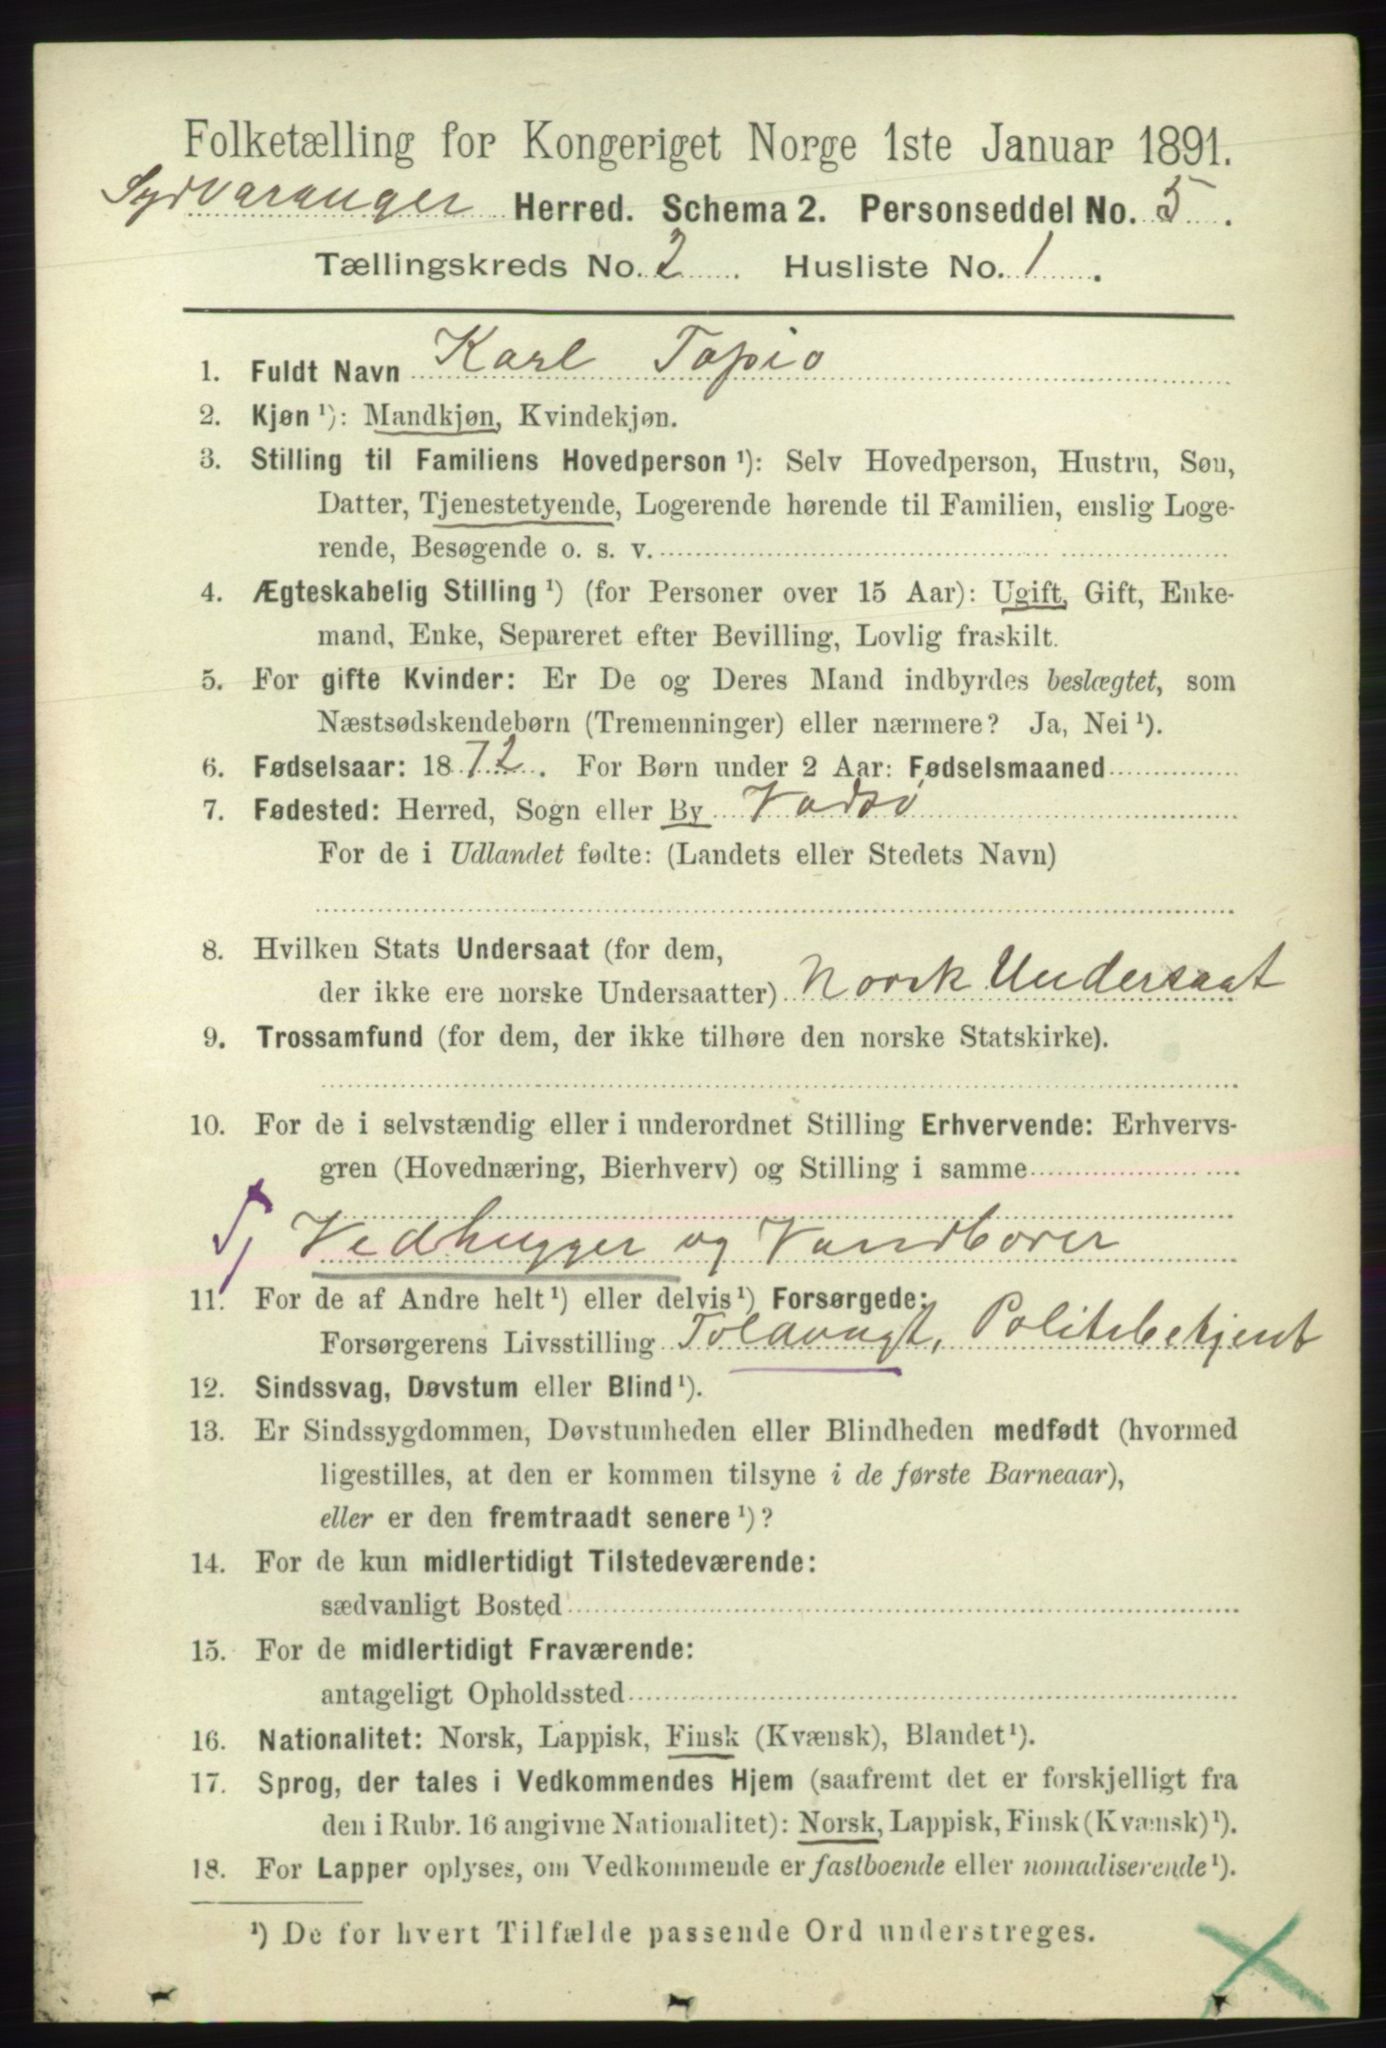 Folketælling for Kongeriget Norge 1ste Januar 1891.
Sydvaranger Herred. Schema 2. Personseddel No. 5.
Tællingskreds No. 2. Husliste No. 1.
1. Fuldt Navn Karl Tapio
2. Kjøn ¹): Mandkjøn, Kvindekjøn.
3. Stilling til Familiens Hovedperson ¹): Selv Hovedperson, Hustru, Søn,
Datter, Tjenestetyende, Logerende hørende til Familien, enslig Loge-
rende, Besøgende o. s. v.
4. Ægteskabelig Stilling ¹) (for Personer over 15 Aar): Ugift, Gift, Enke-
mand, Enke, Separeret efter Bevilling, Lovlig fraskilt.
5. For gifte Kvinder: Er De og Deres Mand indbyrdes beslægtet, som
Næstsødskendebørn (Tremenninger) eller nærmere? Ja, Nei ¹).
6. Fødselsaar: 1872. For Børn under 2 Aar: Fødselsmaaned
7. Fødested: Herred, Sogn eller By Vadsø
For de i Udlandet fødte: (Landets eller Stedets Navn)
8. Hvilken Stats Undersaat (for dem,
der ikke ere norske Undersaatter) Norsk Undersaat
9. Trossamfund (for dem, der ikke tilhøre den norske Statskirke).
10. For de i selvstændig eller i underordnet Stilling Erhvervende: Erhvervs-
gren (Hovednæring, Bierhverv) og Stilling i samme
Vedhugger og Vandbærer
11. For de af Andre helt ¹) eller delvis ¹) Forsørgede:
Forsørgerens Livsstilling Politibetjent
12. Sindssvag, Døvstum eller Blind ¹).
13. Er Sindssygdommen, Døvstumheden eller Blindheden medfødt (hvormed
ligestilles, at den er kommen tilsyne i de første Barneaar),
eller er den fremtraadt senere ¹)?
14. For de kun midlertidigt Tilstedeværende:
sædvanligt Bosted
15. For de midlertidigt Fraværende:
antageligt Opholdssted
16. Nationalitet: Norsk, Lappisk, Finsk (Kvænsk), Blandet ¹).
17. Sprog, der tales i Vedkommendes Hjem (saafremt det er forskjelligt fra
den i Rubr. 16 angivne Nationalitet): Norsk, Lappisk, Finsk (Kvænsk) ¹).
18. For Lapper oplyses, om Vedkommende er fastboende eller nomadiserende ¹).
¹) De for hvert Tilfælde passende Ord understreges.